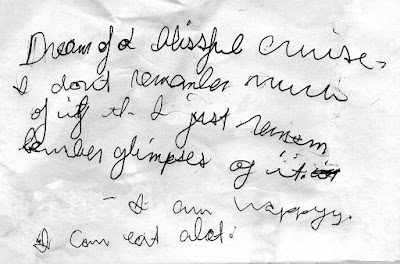 Dream of a blissful cruise -
I don't remember much
of it th I just remem
ember glimpses of it.
- I am happyy.
I can eat alot.